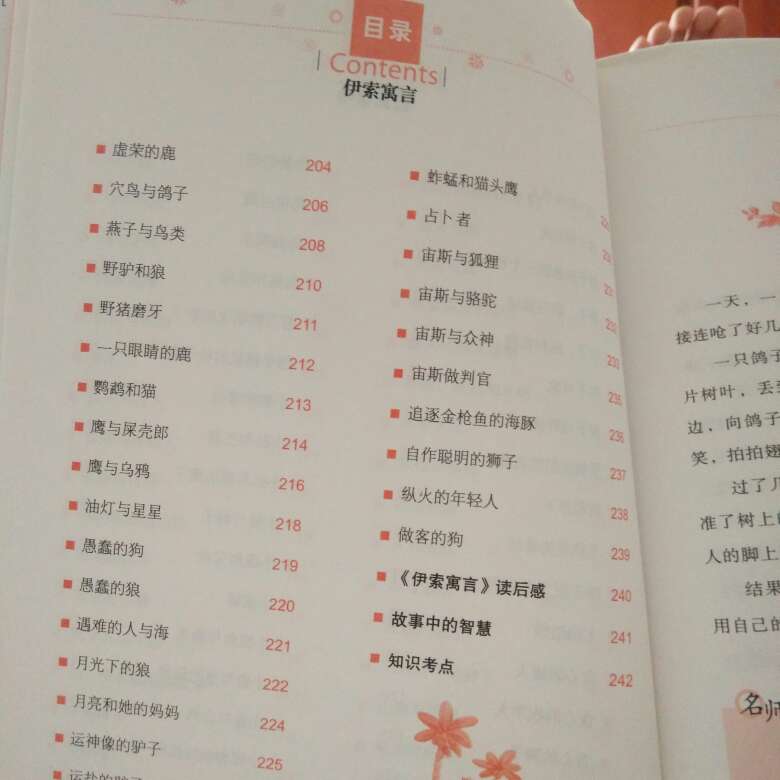 目录
Contents
伊索寓言
虚荣的鹿 204
穴鸟与鸽子 206
燕子与鸟类 208
野驴和狼 210
野猪磨牙 211
一只眼睛的鹿 212
鹦鹉和猫 213
鹰与屎壳郎 214
鹰与乌鸦 216
油灯与星星 218
愚蠢的狗 219
愚蠢的狼 220
遇难的人与海 221
月光下的狼 222
月亮和她的妈妈 224
运神像的驴子 225
蚱蜢和猫头鹰
占卜者
宙斯与狐狸
宙斯与骆驼
宙斯与众神 233
宙斯做判官 235
追逐金枪鱼的海豚 236
自作聪明的狮子 237
纵火的年轻人 238
做客的狗 239
《伊索寓言》读后感 240
故事中的智慧 241
知识考点 242
一天，一
接连呛了好几
一只鸽子
片树叶，丢
边，向鸽子
笑，拍拍翅
过了几
准了树上的
人的脚上
结果
用自己的
名师